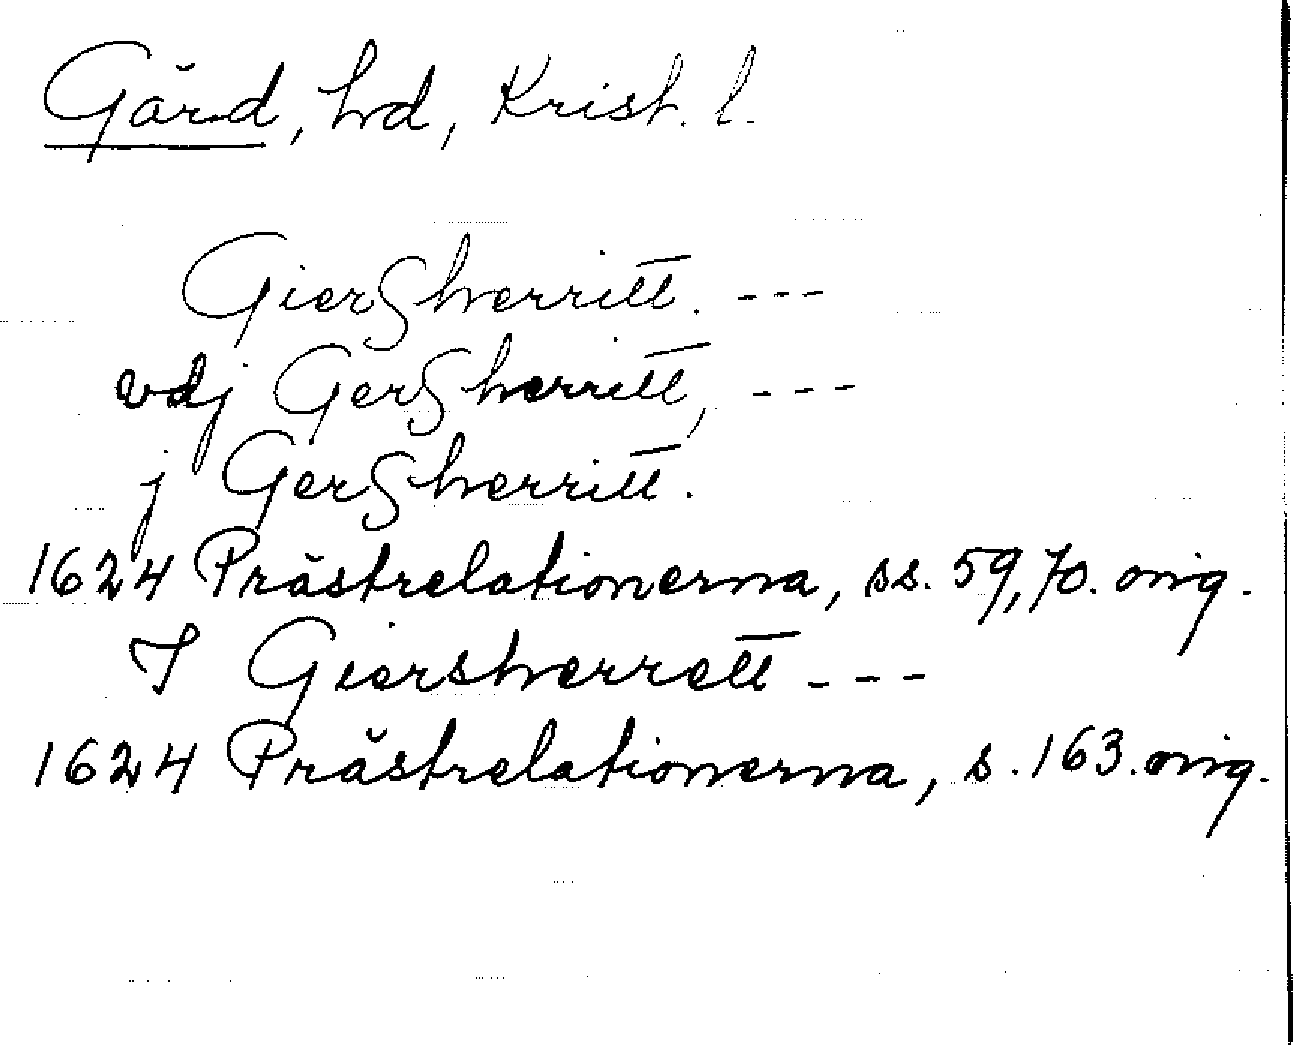 Gärd, hd, Krist. l.
Gierßherritt. ---
vdj Gerßherritt, ---
j Gerßherritt.
1624 Prästrelationerna, ss. 59, 70. orig.
I Giersherrett ---
1624 Prästrelationerna, s. 163. orig.